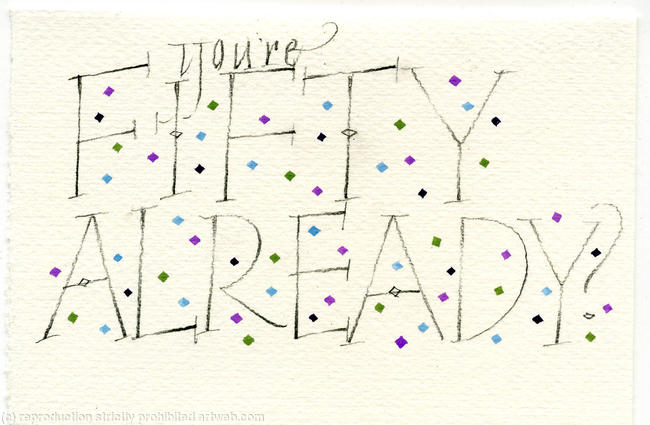 you're
FIFTY
ALREADY?
(c) reproduction strictly prohibited artweb.com